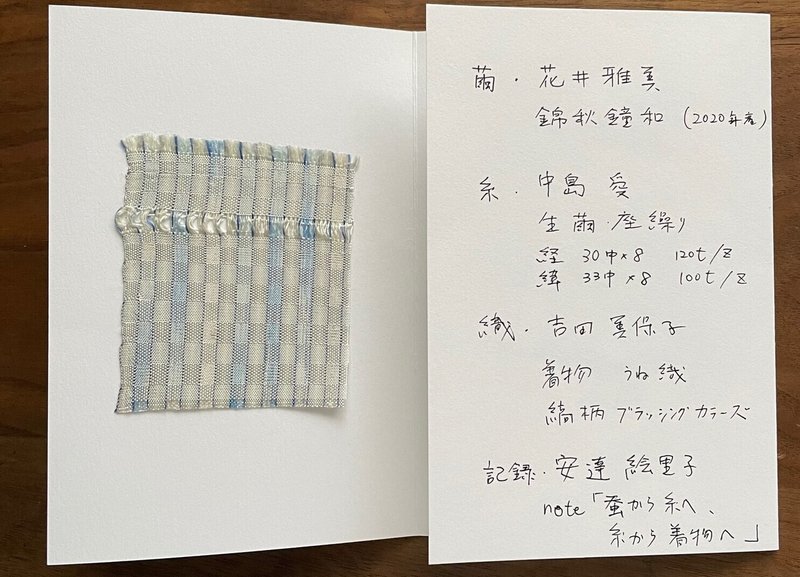 繭・花井雅美
錦秋鐘和 (2020年産)
糸・中島 愛
生繭・座繰り
経 30中×8 120t/z
緯 33中×8 100t/z
織・吉田美保子
着物 うね織
縞柄 ブラッシングカラーズ
記録・安達絵里子
note「蚕から糸へ、
糸から着物へ」